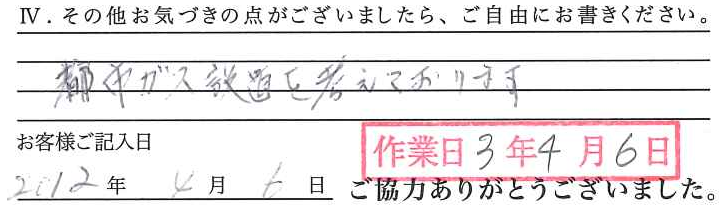 Ⅳ．その他お気づきの点がございましたら、ご自由にお書きください。
都市ガス設置を考えております
お客様ご記入日
作業日3年4月6日
2012年 4月 6日 ご協力ありがとうございました。